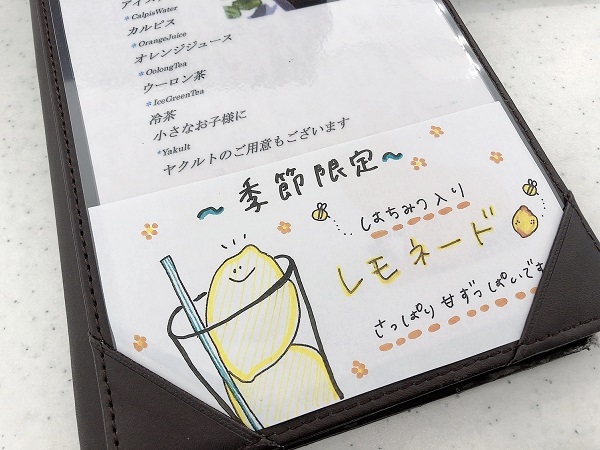 *CalpisWater
カルピス
*OrangeJuice
オレンジジュース
*OolongTea
ウーロン茶
*IceGreenTea
冷茶
小さなお子様に
*Yakult
ヤクルトのご用意もございます
~季節限定~
はちみつ入り
レモネード
さっぱり甘ずっぱいです